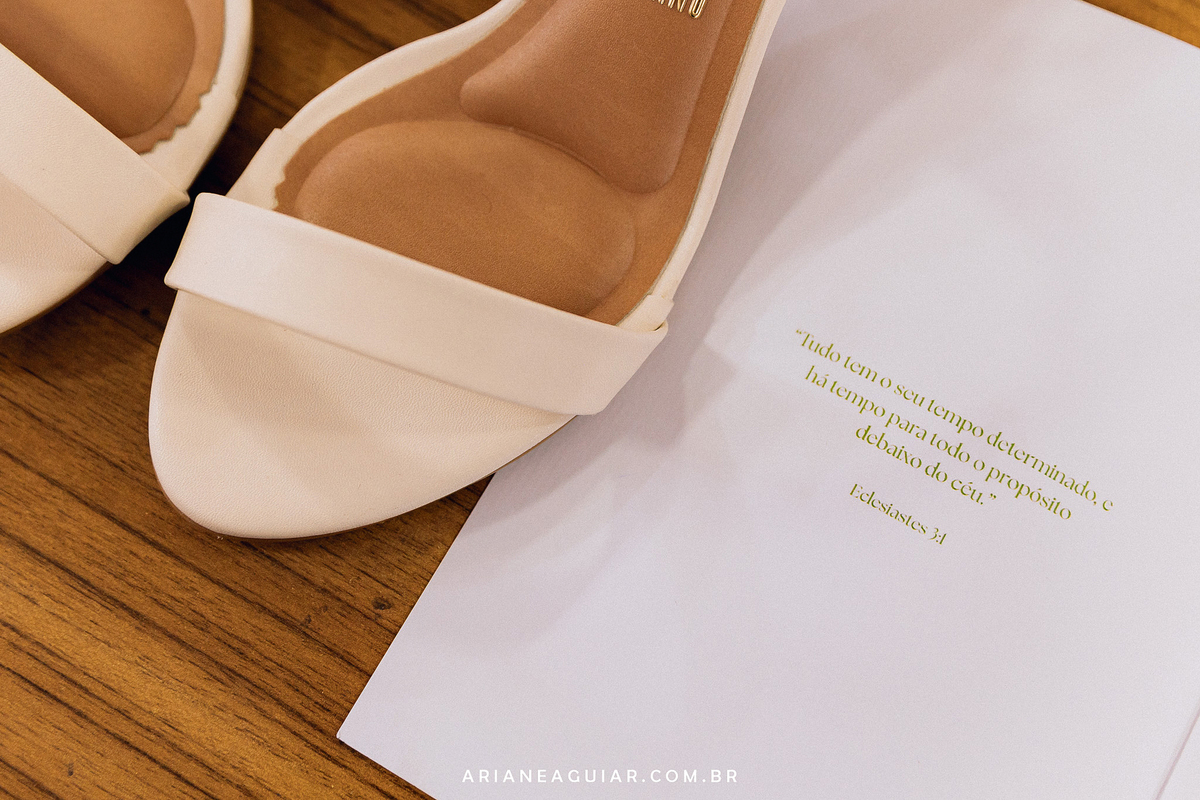 “Tudo tem o seu tempo determinado, e
há tempo para todo o propósito
debaixo do céu.”
Eclesiastes 3:1
ARIANEAGUIAR.COM.BR